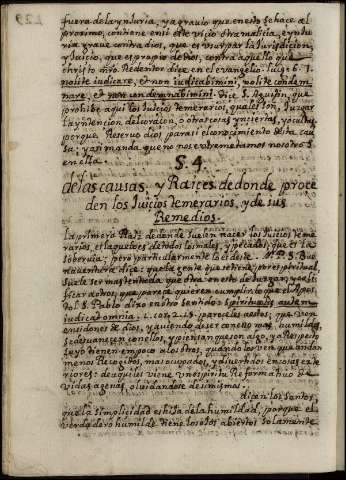 fuera de la ynjuria, y agravio que en esto se hace al
proximo, contiene en si este vicio otra malicia, e ynju
ria grave contra dios, que es usurpar la Jurisdicion,
y Juicio, que es propio de dios, contra aquello que
christo nro. Redentor dice en el evangelio. luc. 6.
nolite iudicare, et non iudicabimini, nolite condem
nare, et non condemnabimini. Dice S. Agustin, que
prohibe aqui los Juicios temerarios, quales son, Juzgar
la yntencion del corazon, o otras cosas ynciertas, y ocultas
porque Reservo dios para si el conocimiento desta cau
sa, y ansi manda que no nos entremetamos nosotros
en ella.
S. 4
de las causas, y Raices de donde proce
den los Juicios temerarios, y de sus
Remedios.
La primera Raiz de donde suelen nacer los Juicios teme
rarios, es la que lo es de todos los males, y pecados, que es la
sobervia; pero particularmente lo es deste. N. P. S. Bue
naventura dice: que la gente que se tiene por espiritual,
suele ser mas tentada que otra en esto de Juzgar, y cali
ficar a otros, que parece quieren cumplir lo que el Apos
tol S. Pablo dixo en otro sentido: spiritualis autem
iudicat omnia. 1. cor. 2. 15. pareceles a estos, que ven
en si dones de dios, y aviendo de ser con ello mas humildes,
se desvanecen con ellos, y piensan que son algo, y a Respecto
suyo tienen en poco a los otros, quando los ven que andan
menos Recogidos, mas ocupados, y divertidos en cosas exte
riores: de aqui les viene un espiritu Reformativo de
vidas agenas, olvidandose de si mismos.
dicen los santos,
que la simplicidad es hija de la humildad, porque el
verdadero humilde tiene los ojos abiertos solamente